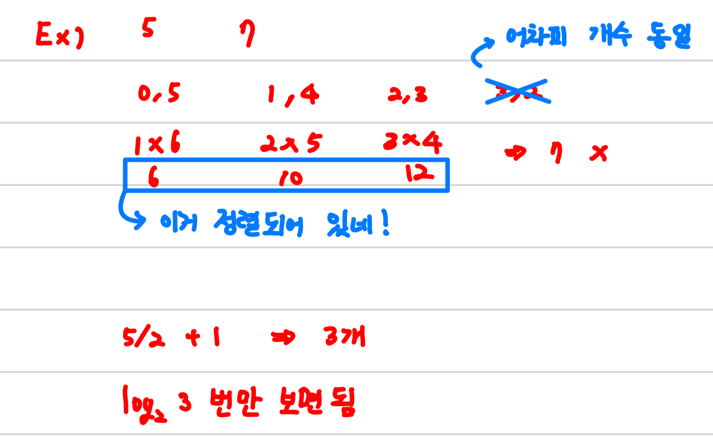 Ex) 5 7
어차피 개수 동일
0,5 1,4 2,3
1×6 2×5 3×4 ⇒ 7 x
6 10 12
이거 정렬되어 있네!
5/2 +1 ⇒ 3개
log₂ 3 번만 보면 됨